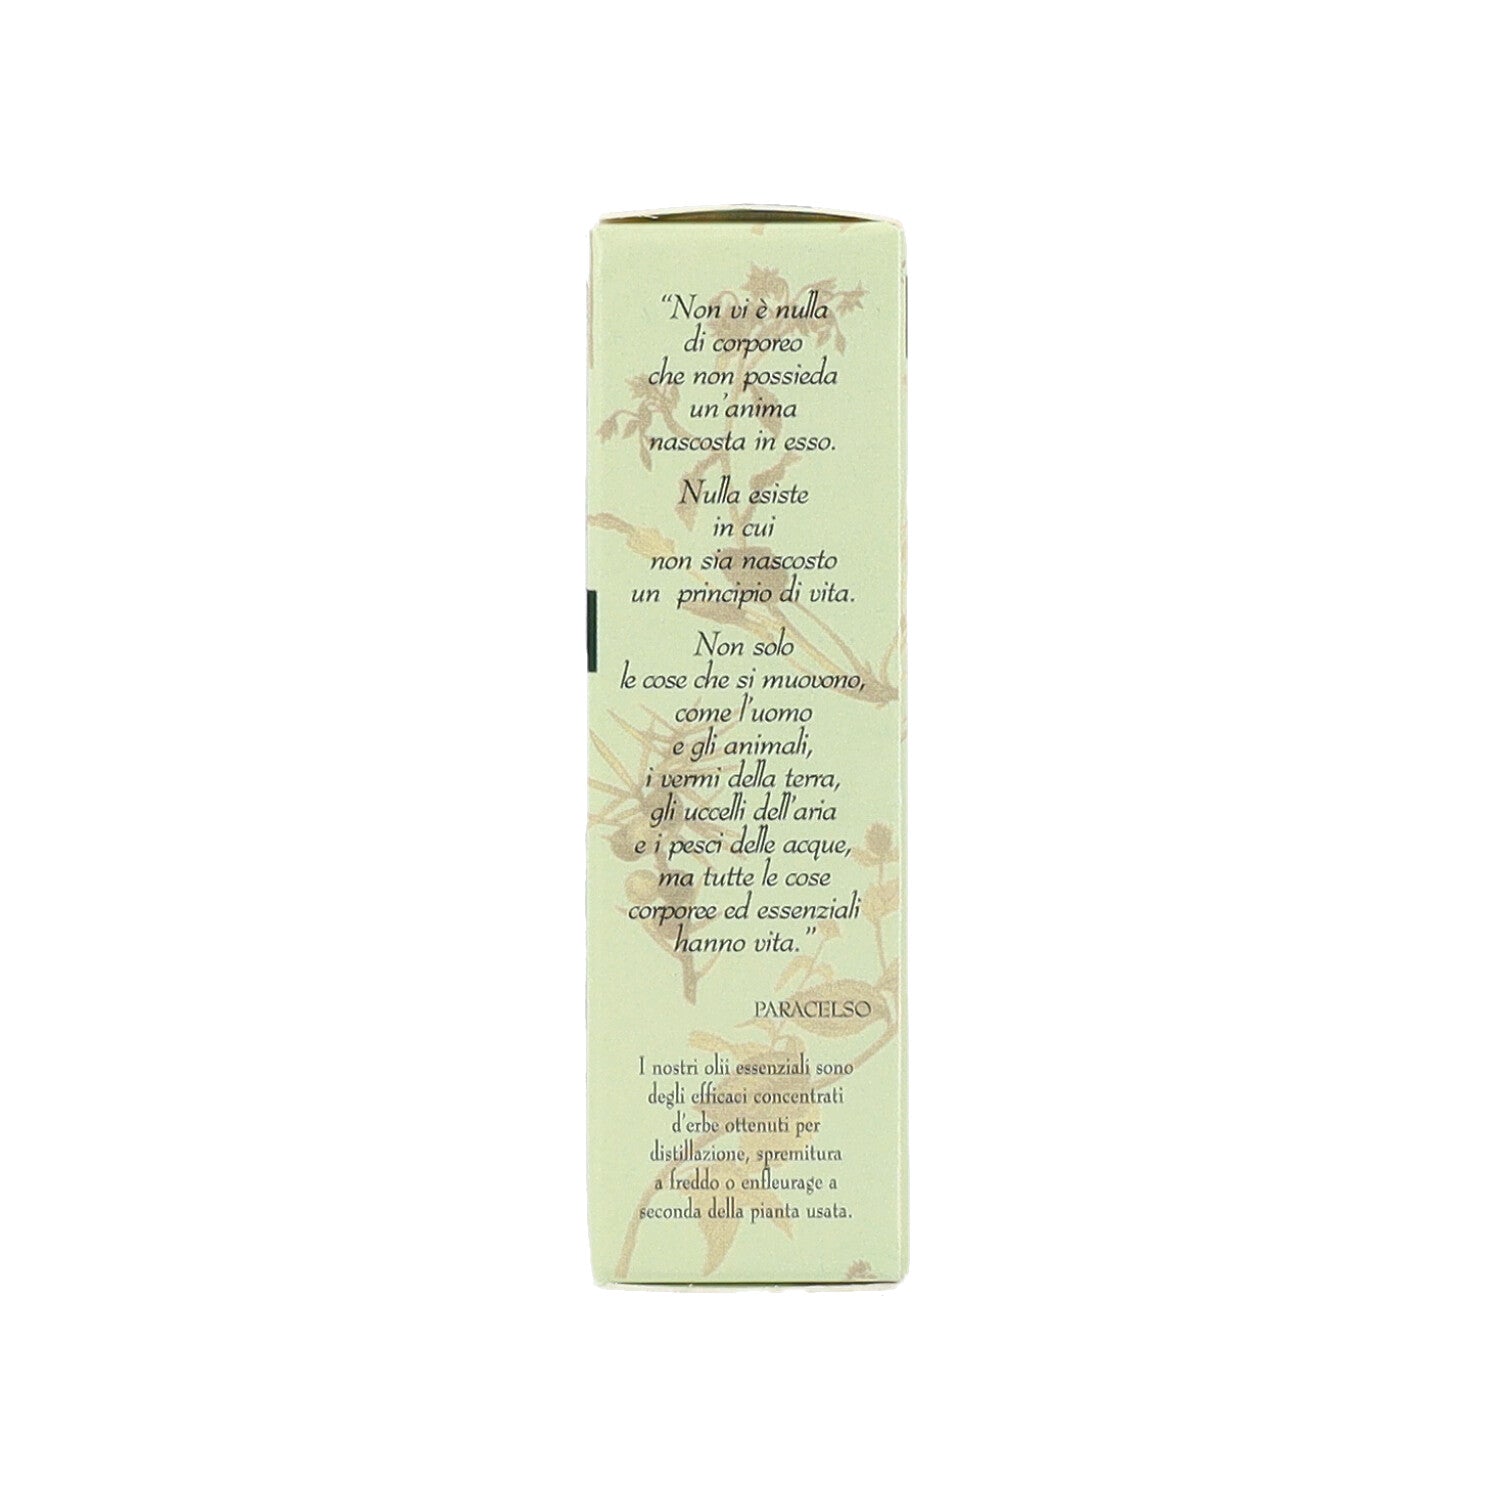 “Non vi è nulla
di corporeo
che non possieda
un'anima
nascosta in esso.
Nulla esiste
in cui
non sia nascosto
un principio di vita.
Non solo
le cose che si muovono,
come l'uomo
e gli animali,
i vermi della terra,
gli uccelli dell'aria
e i pesci delle acque,
ma tutte le cose
corporee ed essenziali
hanno vita.”
PARACELSO
I nostri olii essenziali sono
degli efficaci concentrati
d'erbe ottenuti per
distillazione, spremitura
a freddo o enfleurage a
seconda della pianta usata.